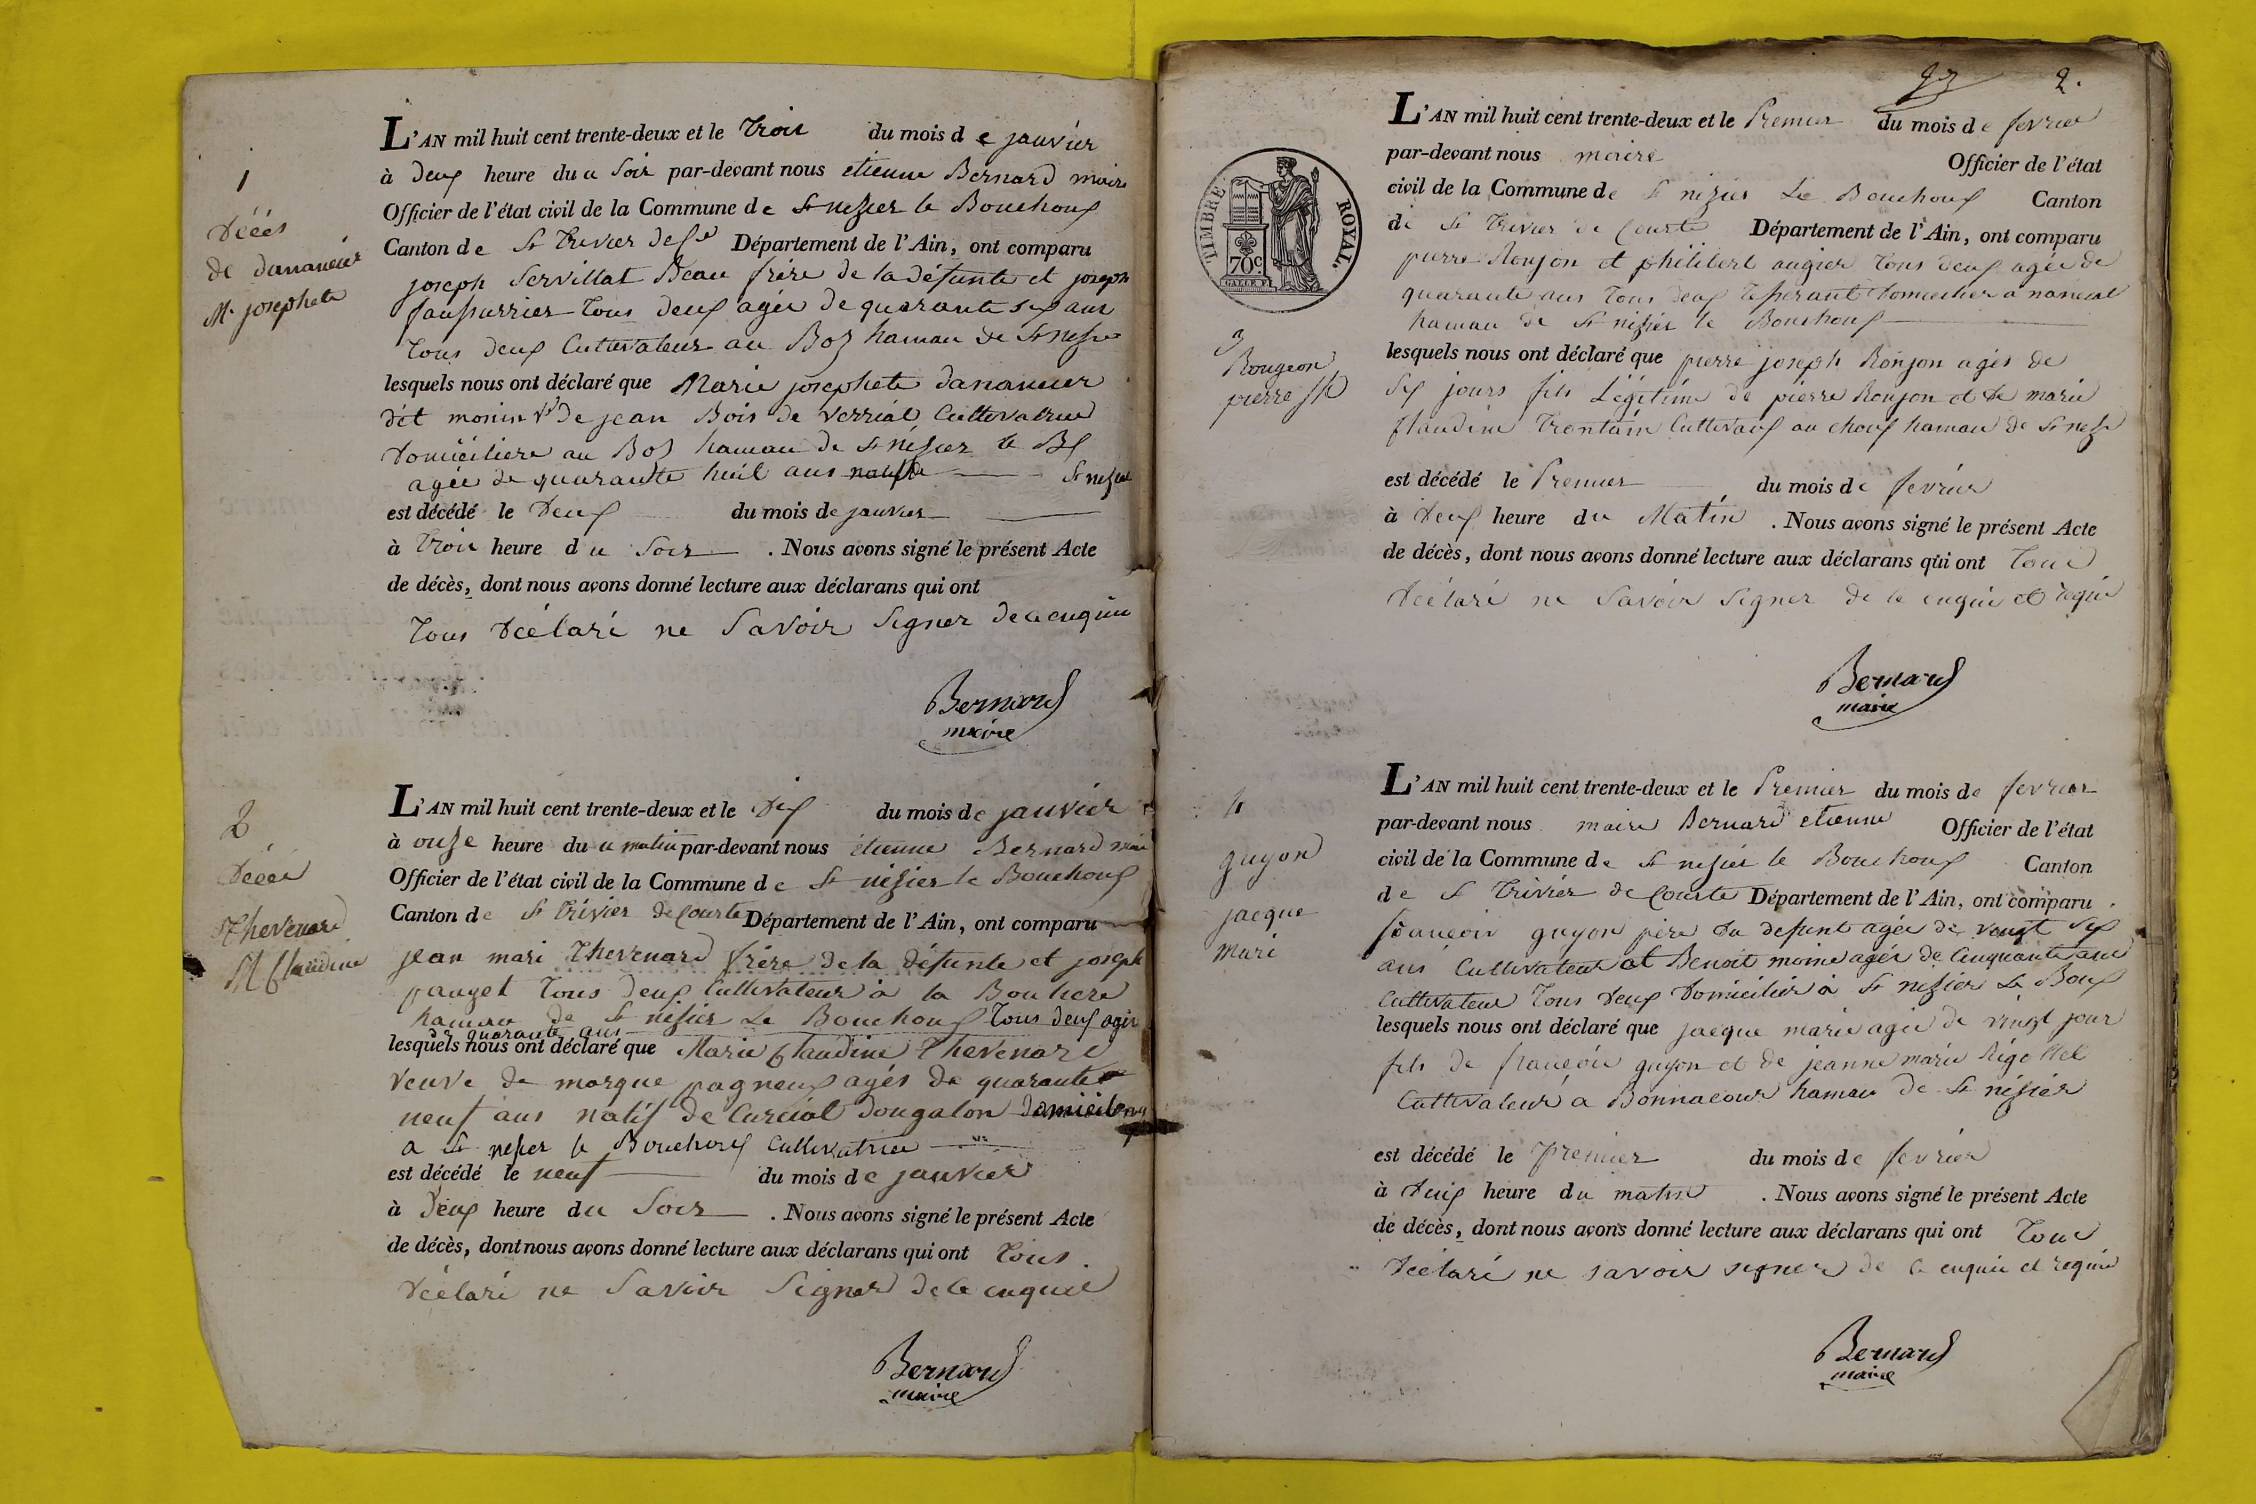 1
Décés
de dananeier
M. josephete
L'AN mil huit cent trente-deux et le trois du mois de janvier
à deux heure du soir par-devant nous etienne Bernard maire
Officier de l'état civil de la Commune de St nizier le Bouchoux
Canton de St trivier de Ctes Département de l'Ain, ont comparu
joseph Servillat Beau frère de la défunte et joseph
tous deux agée de quarante six ans
tous deux Cultivateur au Boz hamau de St nizier
lesquels nous ont déclaré que Marie josephete dananeier
dit monin Ve de jean Bois de verriat Cultivatrice
domiciliere au Boz hamau de St nésier le Bx
agée de quarante huit ans St nizier
est décédé le deux du mois de janvier
à trois heure du soir . Nous avons signé le présent Acte
de décès, dont nous avons donné lecture aux déclarans qui ont
tous déclaré ne savoir signer de ce enquis
Bernard
maire
2
Décéé
Thevenard
M Claudine
L'AN mil huit cent trente-deux et le dix du mois de janvier
à onze heure du matin par-devant nous étienne Bernard maire
Officier de l'état civil de la Commune de St nizier le Bouchoux
Canton de St trivier de Courte Département de l'Ain, ont comparu
jean mari thevenard frère de la défunte et joseph
pauget tous deux Cultivateur à la Bouliere
hamau de St nizier Le Bouchoux tous deux agés
quarante ans
lesquels nous ont déclaré que Marie Claudine thevenard
veuve de marque pagneux agés de quarante
neuf ans natif de Curciat dongalon domicilier
a St nesier le Bouchoux Cultivatrice
est décédé le neuf du mois de janvier
à deux heure du soir . Nous avons signé le présent Acte
de décès, dont nous avons donné lecture aux déclarans qui ont tous
déclaré ne savoir signer de ce enquie
Bernard
maire
2.
TIMBRE ROYAL.
70c
3
Rougeon
pierre jph
L'AN mil huit cent trente-deux et le Premier du mois de fevrier
par-devant nous maire Officier de l'état
civil de la Commune de St nizier Le Bouchoux Canton
de St trivier de Courte Département de l'Ain, ont comparu
pierre Ronjon et philibert augier tous deux agée de
quarante ans tous deux domicilier a
hamau de St nizier le Bouchoux
lesquels nous ont déclaré que pierre joseph Ronjon agés de
six jours fils Légétime de pierre Ronjon et de marie
Claudine trontain Cultivaux au choux hamau de St nezier
est décédé le Premier du mois de fevrier
à deux heure du Matin . Nous avons signé le présent Acte
de décès, dont nous avons donné lecture aux déclarans qui ont tous
déclaré ne savoir signer de ce enquie et requie
Bernard
maire
4
guyon
jacque
mari
L'AN mil huit cent trente-deux et le Premier du mois de fevrier
par-devant nous maire Bernard etienne Officier de l'état
civil de la Commune de St nezier le Bouchoux Canton
de St trivier de Courte Département de l'Ain, ont comparu
françois guyon père du defunt agée de vingt six
ans Cultivateur et Benoit moine agée de Cinquante ans
Cultivateur tous deux domicilier à St nizier Le Boux
lesquels nous ont déclaré que jacque marie agée de vingt jour
fils de françois guyon et de jeanne marie Rigottet
Cultivateur a Bonnacour hamau de St nésier
est décédé le premier du mois de fevrier
à deux heure du matin . Nous avons signé le présent Acte
de décès, dont nous avons donné lecture aux déclarans qui ont tous
déclaré ne savoir signer de ce enquie et requie
Bernard
maire